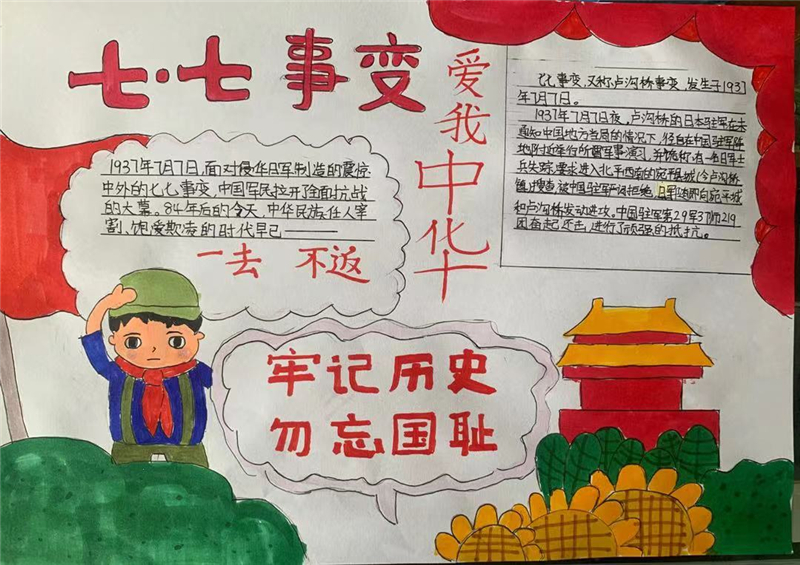 七·七事变
爱我中华
1937年7月7日,面对侵华日军制造的震惊
中外的七七事变,中国军民拉开了全面抗战
的大幕。84年后的今天,中华民族任人宰
割、饱受欺凌的时代早已——
一去 不返
七七事变,又称卢沟桥事变,发生于1937
年7月7日。
1937年7月7日夜,卢沟桥的日本驻军在未
通知中国地方当局的情况下,径自在中国驻军阵
地附近举行所谓军事演习,并诡称有一名日军士
兵失踪,要求进入北平西南的宛平县城(今卢沟桥
镇)搜查,被中国驻军严词拒绝,日军随即向宛平城
和卢沟桥发动进攻。中国驻军第29军37师219
团奋起还击,进行了顽强的抵抗。
牢记历史
勿忘国耻